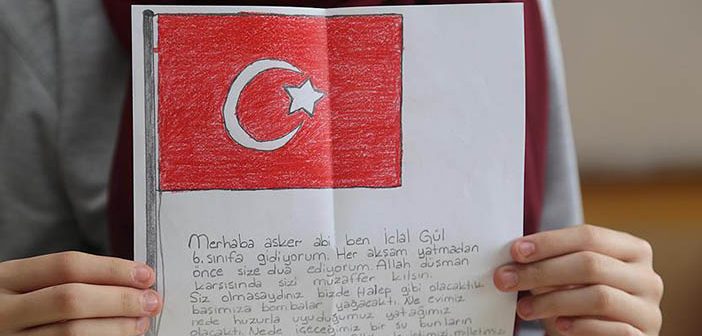 Merhaba asker abi ben İclal Gül
6. sınıfa gidiyorum. Her akşam yatmadan
önce size dua ediyorum. Allah düşman
karşısında sizi muzaffer kılsın.
Siz olmasaydınız bizde Halep gibi olacaktık
başımıza bombalar yağacaktı. Ne evimiz
nede huzurla uyuduğumuz yatağımız
olacaktı. Nede içeceğimiz bir su bunların
milletimizi